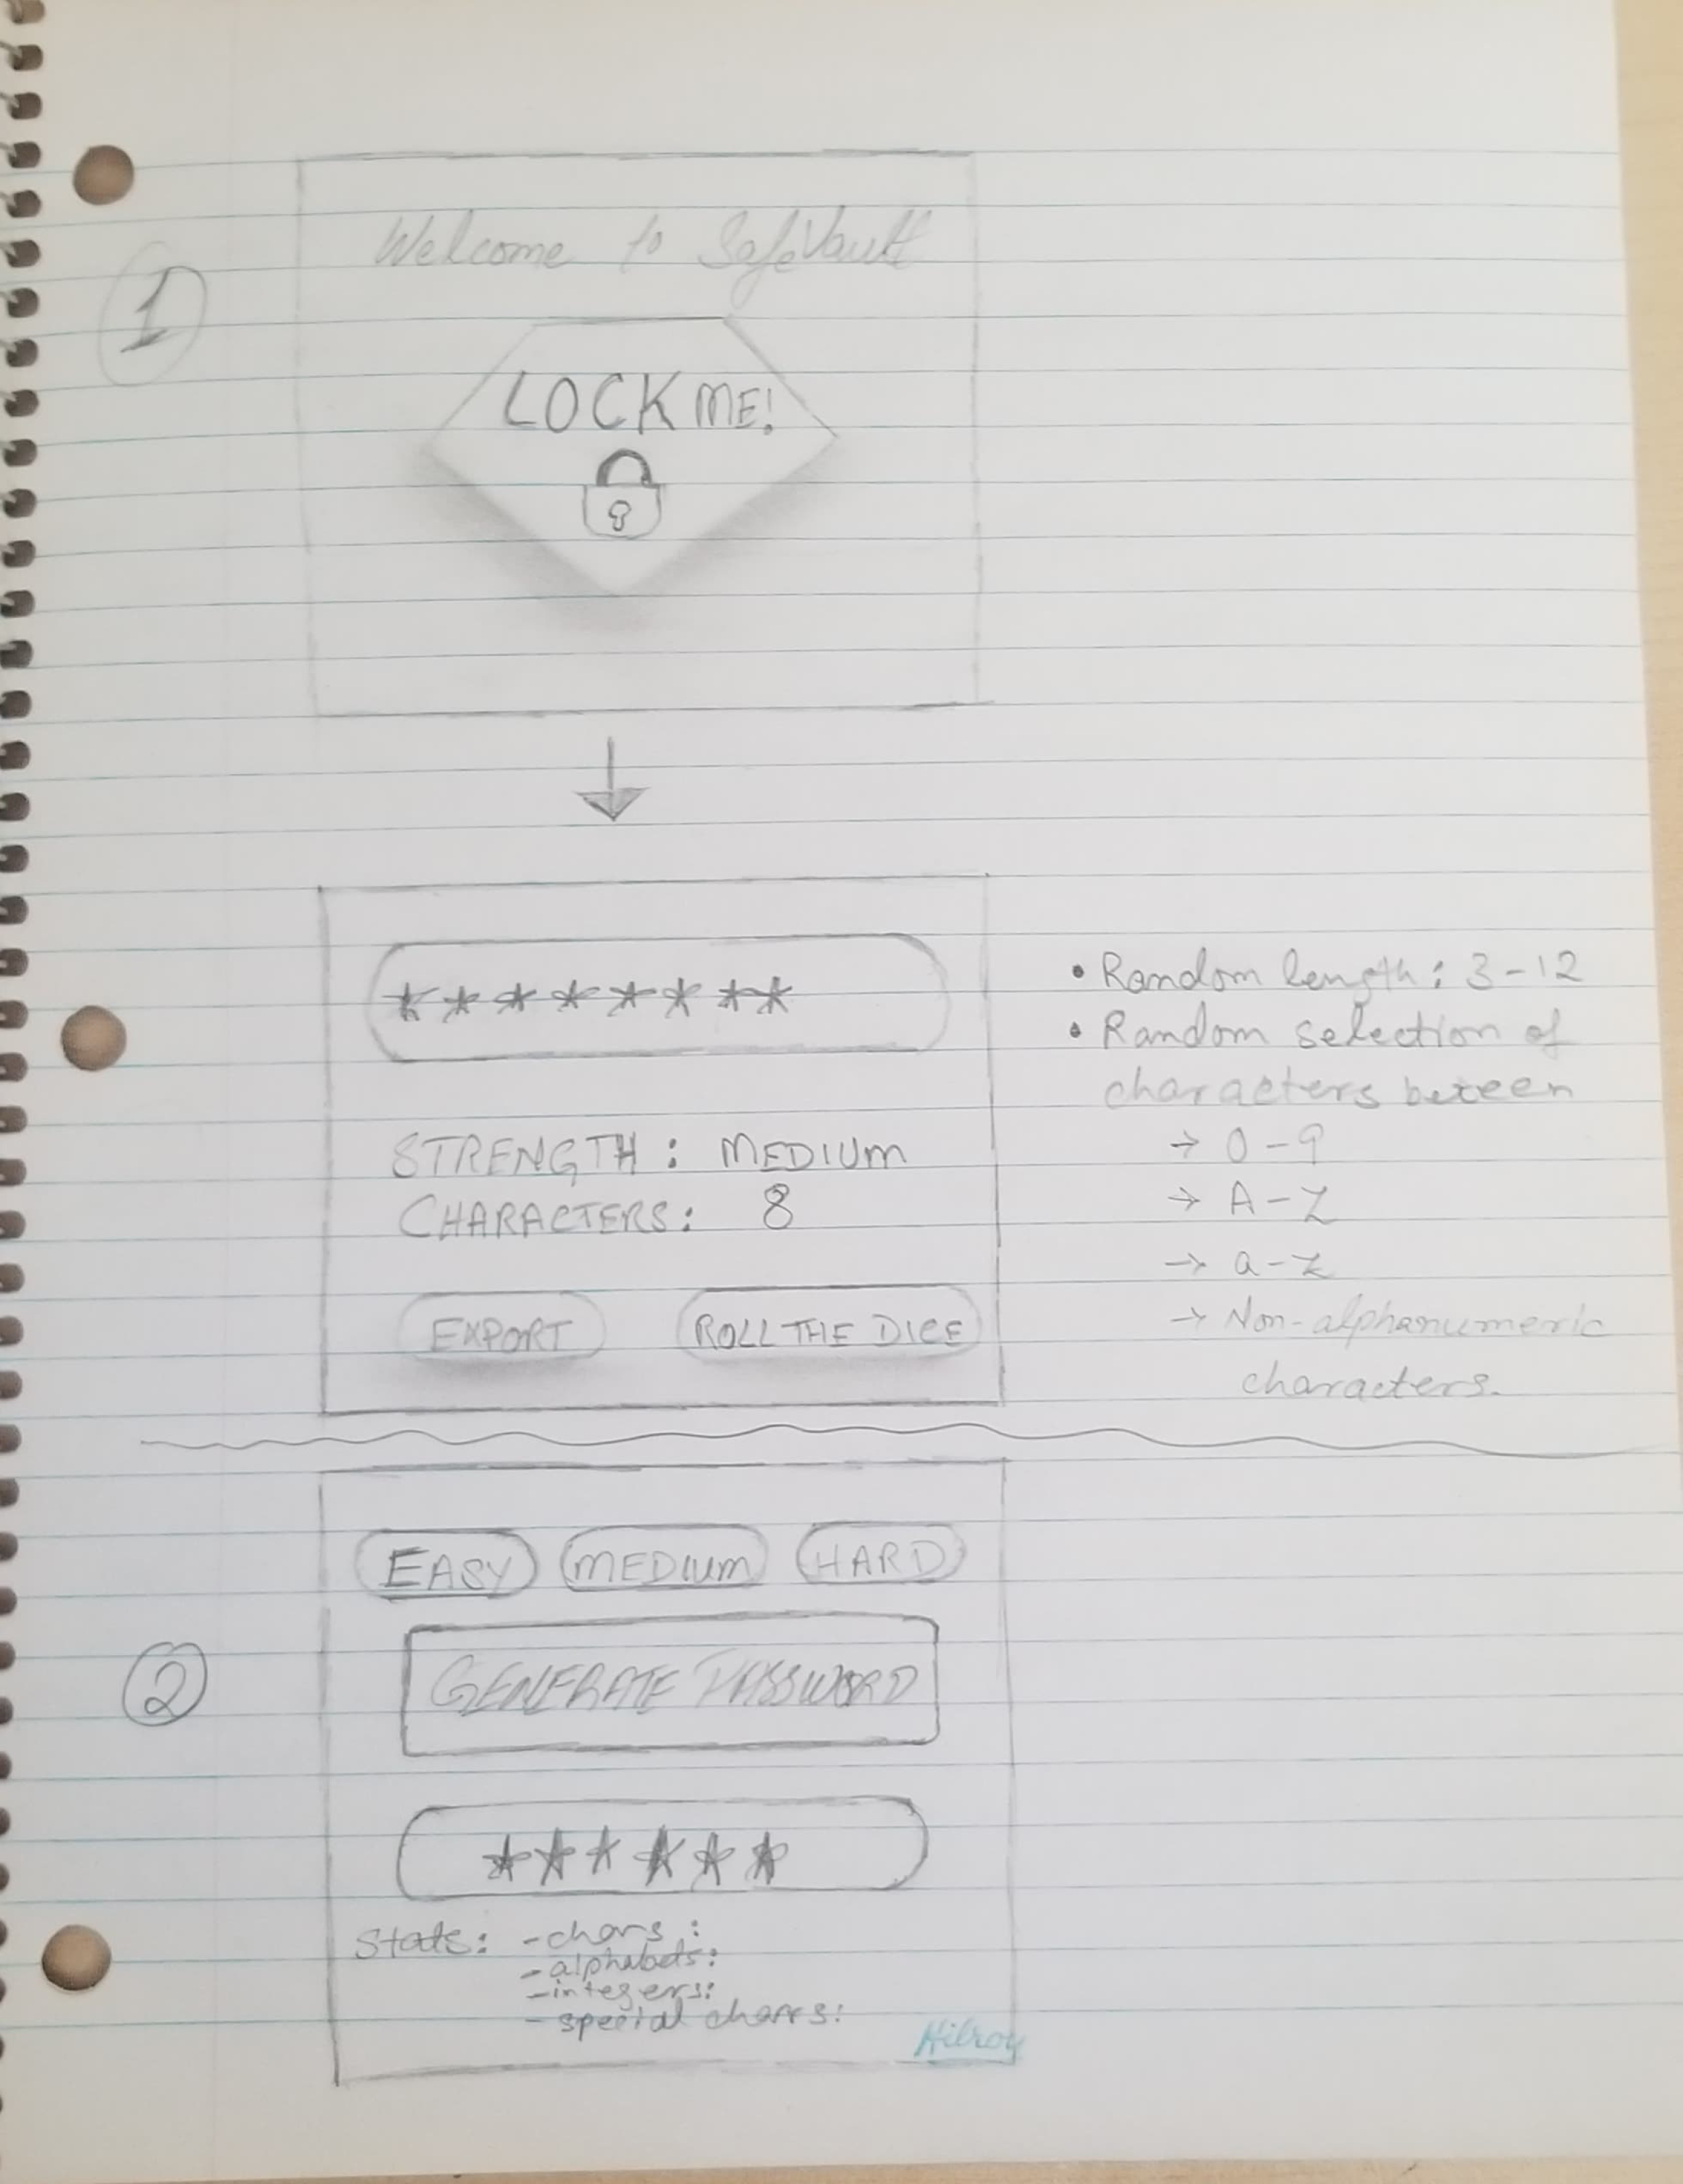 1
Welcome to SafeVault
LOCK ME!
* * * * * * * *
STRENGTH : MEDIUM
CHARACTERS: 8
EXPORT ROLL THE DICE
• Random length: 3-12
• Random selection of
characters beteen
→ 0-9
→ A-Z
→ a-z
→ Non-alphanumeric
characters.
2
EASY MEDIUM HARD
GENERATE PASSWORD
* * * * * *
Stats: - chars :
- alphabets:
- integers:
- special chars:
Hilroy